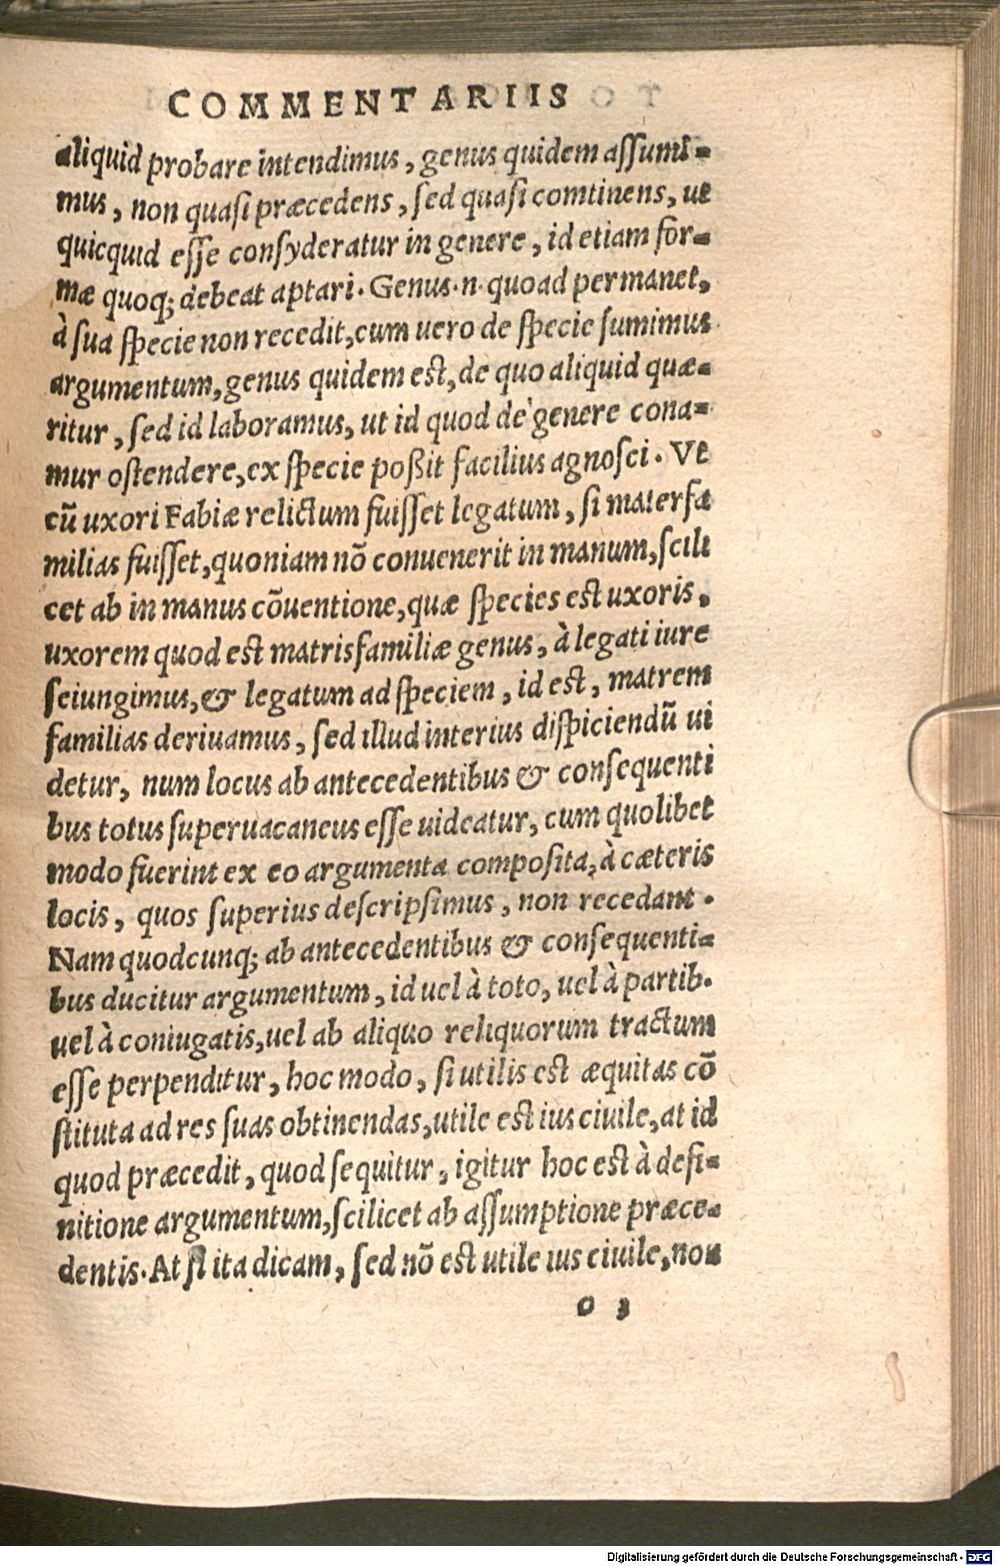 COMMENTARIIS
aliquid probare intendimus, genus quidem assumi-
mus, non quasi præcedens, sed quasi comtinens, ut
quicquid esse consyderatur in genere, id etiam for-
mæ quoq; debeat aptari. Genus.n. quoad permanet,
à sua specie non recedit, cum uero de specie sumimus
argumentum, genus quidem est, de quo aliquid quæ-
ritur, sed id laboramus, ut id quod de genere cona-
mur ostendere, ex specie poßit facilius agnosci. Vt
cū uxori Fabiæ relictum fuisset legatum, si materfa
milias fuisset, quoniam nō conuenerit in manum, scili
cet ab in manus cōuentione, quæ species est uxoris,
uxorem quod est matrisfamiliæ genus, à legati iure
seiungimus, & legatum ad speciem, id est, matrem
familias deriuamus, sed illud interius dispiciendū ui
detur, num locus ab antecedentibus & consequenti
bus totus superuacaneus esse uideatur, cum quolibet
modo fuerint ex eo argumenta composita, à cæteris
locis, quos superius descripsimus, non recedant.
Nam quodcunq; ab antecedentibus & consequenti-
bus ducitur argumentum, id uel à toto, uel à partib.
uel à coniugatis, uel ab aliquo reliquorum tractum
esse perpenditur, hoc modo, si utilis est æquitas cō
stituta ad res suas obtinendas, utile est ius ciuile, at id
quod præcedit, quod sequitur, igitur hoc est à defi-
nitione argumentum, scilicet ab assumptione præce-
dentis. At si ita dicam, sed nō est utile ius ciuile, non
o 3
Digitalisierung gefördert durch die Deutsche Forschungsgemeinschaft - DFG